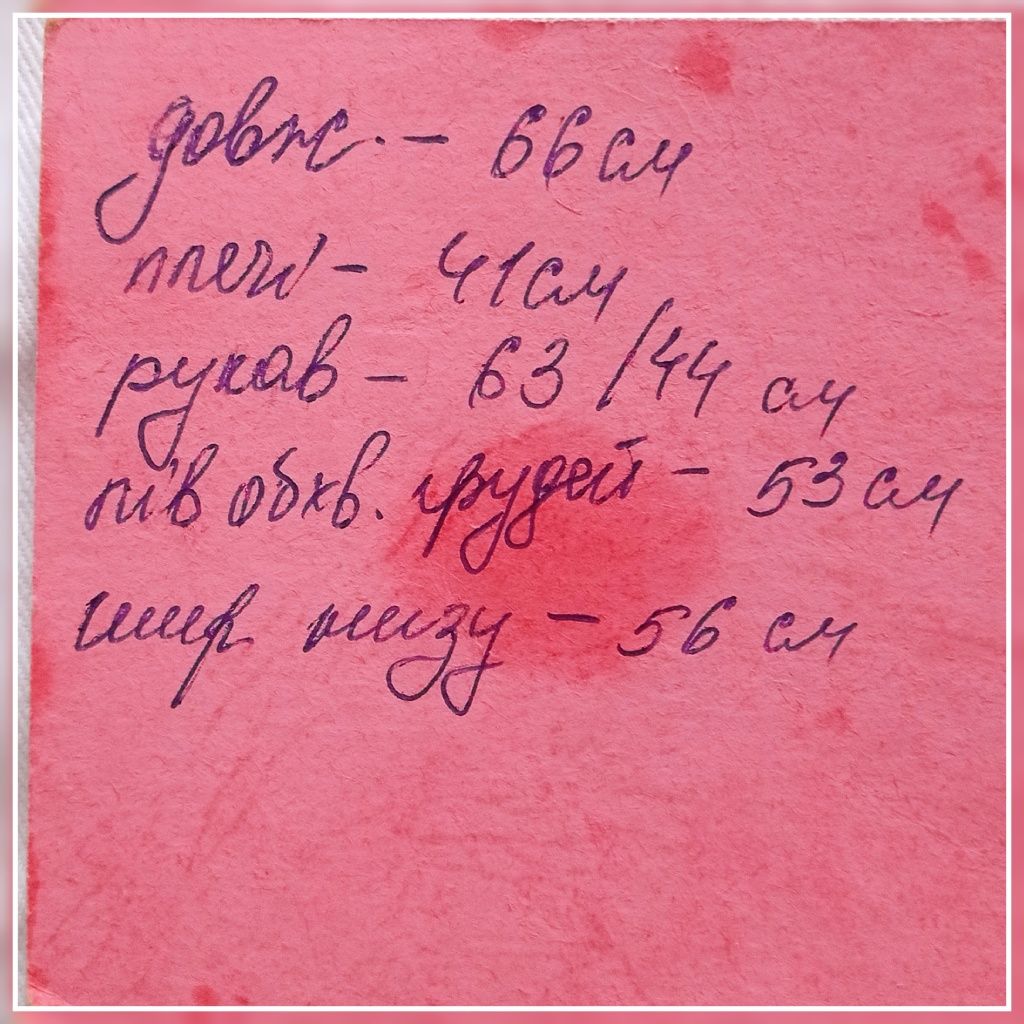 довж. - 66 см
плечі - 41 см
рукав - 63 /44 см
пів обхв. грудей - 53 см
шир низу - 56 см